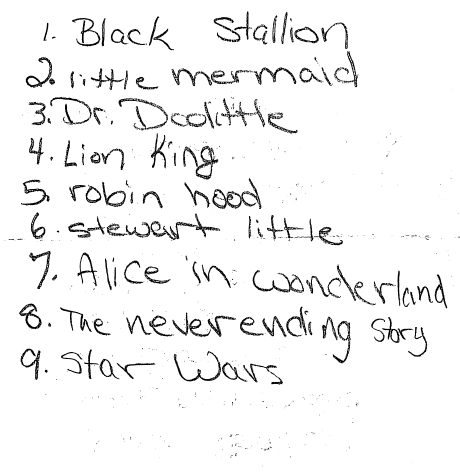 1. Black Stallion
2. little mermaid
3. Dr. Doolittle
4. Lion King
5. robin hood
6. stewart little
7. Alice in wonderland
8. The neverending Story
9. Star Wars